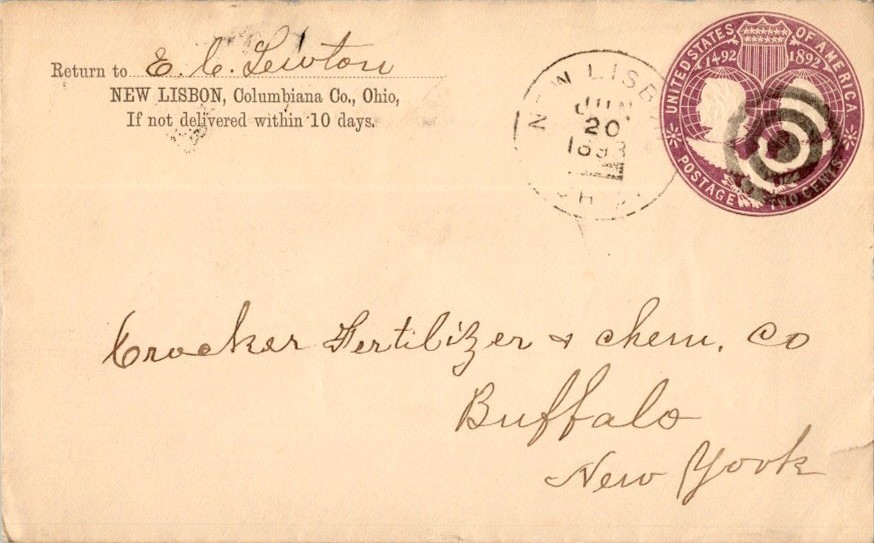 Return to E. C. Lewton
NEW LISBON, Columbiana Co., Ohio,
If not delivered within 10 days.
NEW LISB
JUN
20
1893
UNITED STATES OF AMERICA
1492 1892
POSTAGE TWO CENTS
Crocker Fertilizer & Chem. Co
Buffalo
New York